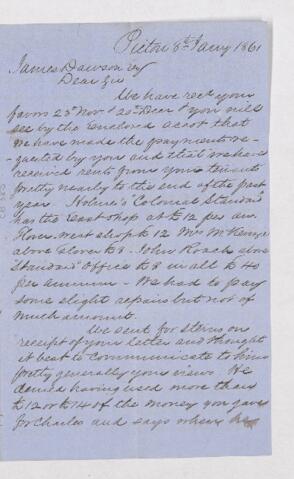 Pictou 8th Jany 1861
James Dawson Esq
Dear Sir
We have recd your
favors 23d Nov & 20th Decr & you will
see by the enclosed acct that
we have made the payments re-
quested by you and that we have
received rents from your tenants
pretty nearly to the end of the past
year. Holmes's Colonial Standard
has the East shop at £12 per an.
west shop £12 Mrs McKenzie
above £8. John Roach above
"Standard" Office £8 in all £40
per annum - We had to pay
some slight repairs but not of
much amount.
We sent for Sterns on
receipt of your letter and thought
it best to communicate to him
pretty generally your views. He
denied having used more than
£12 or £14 of the money you gave
for Charles and says where he